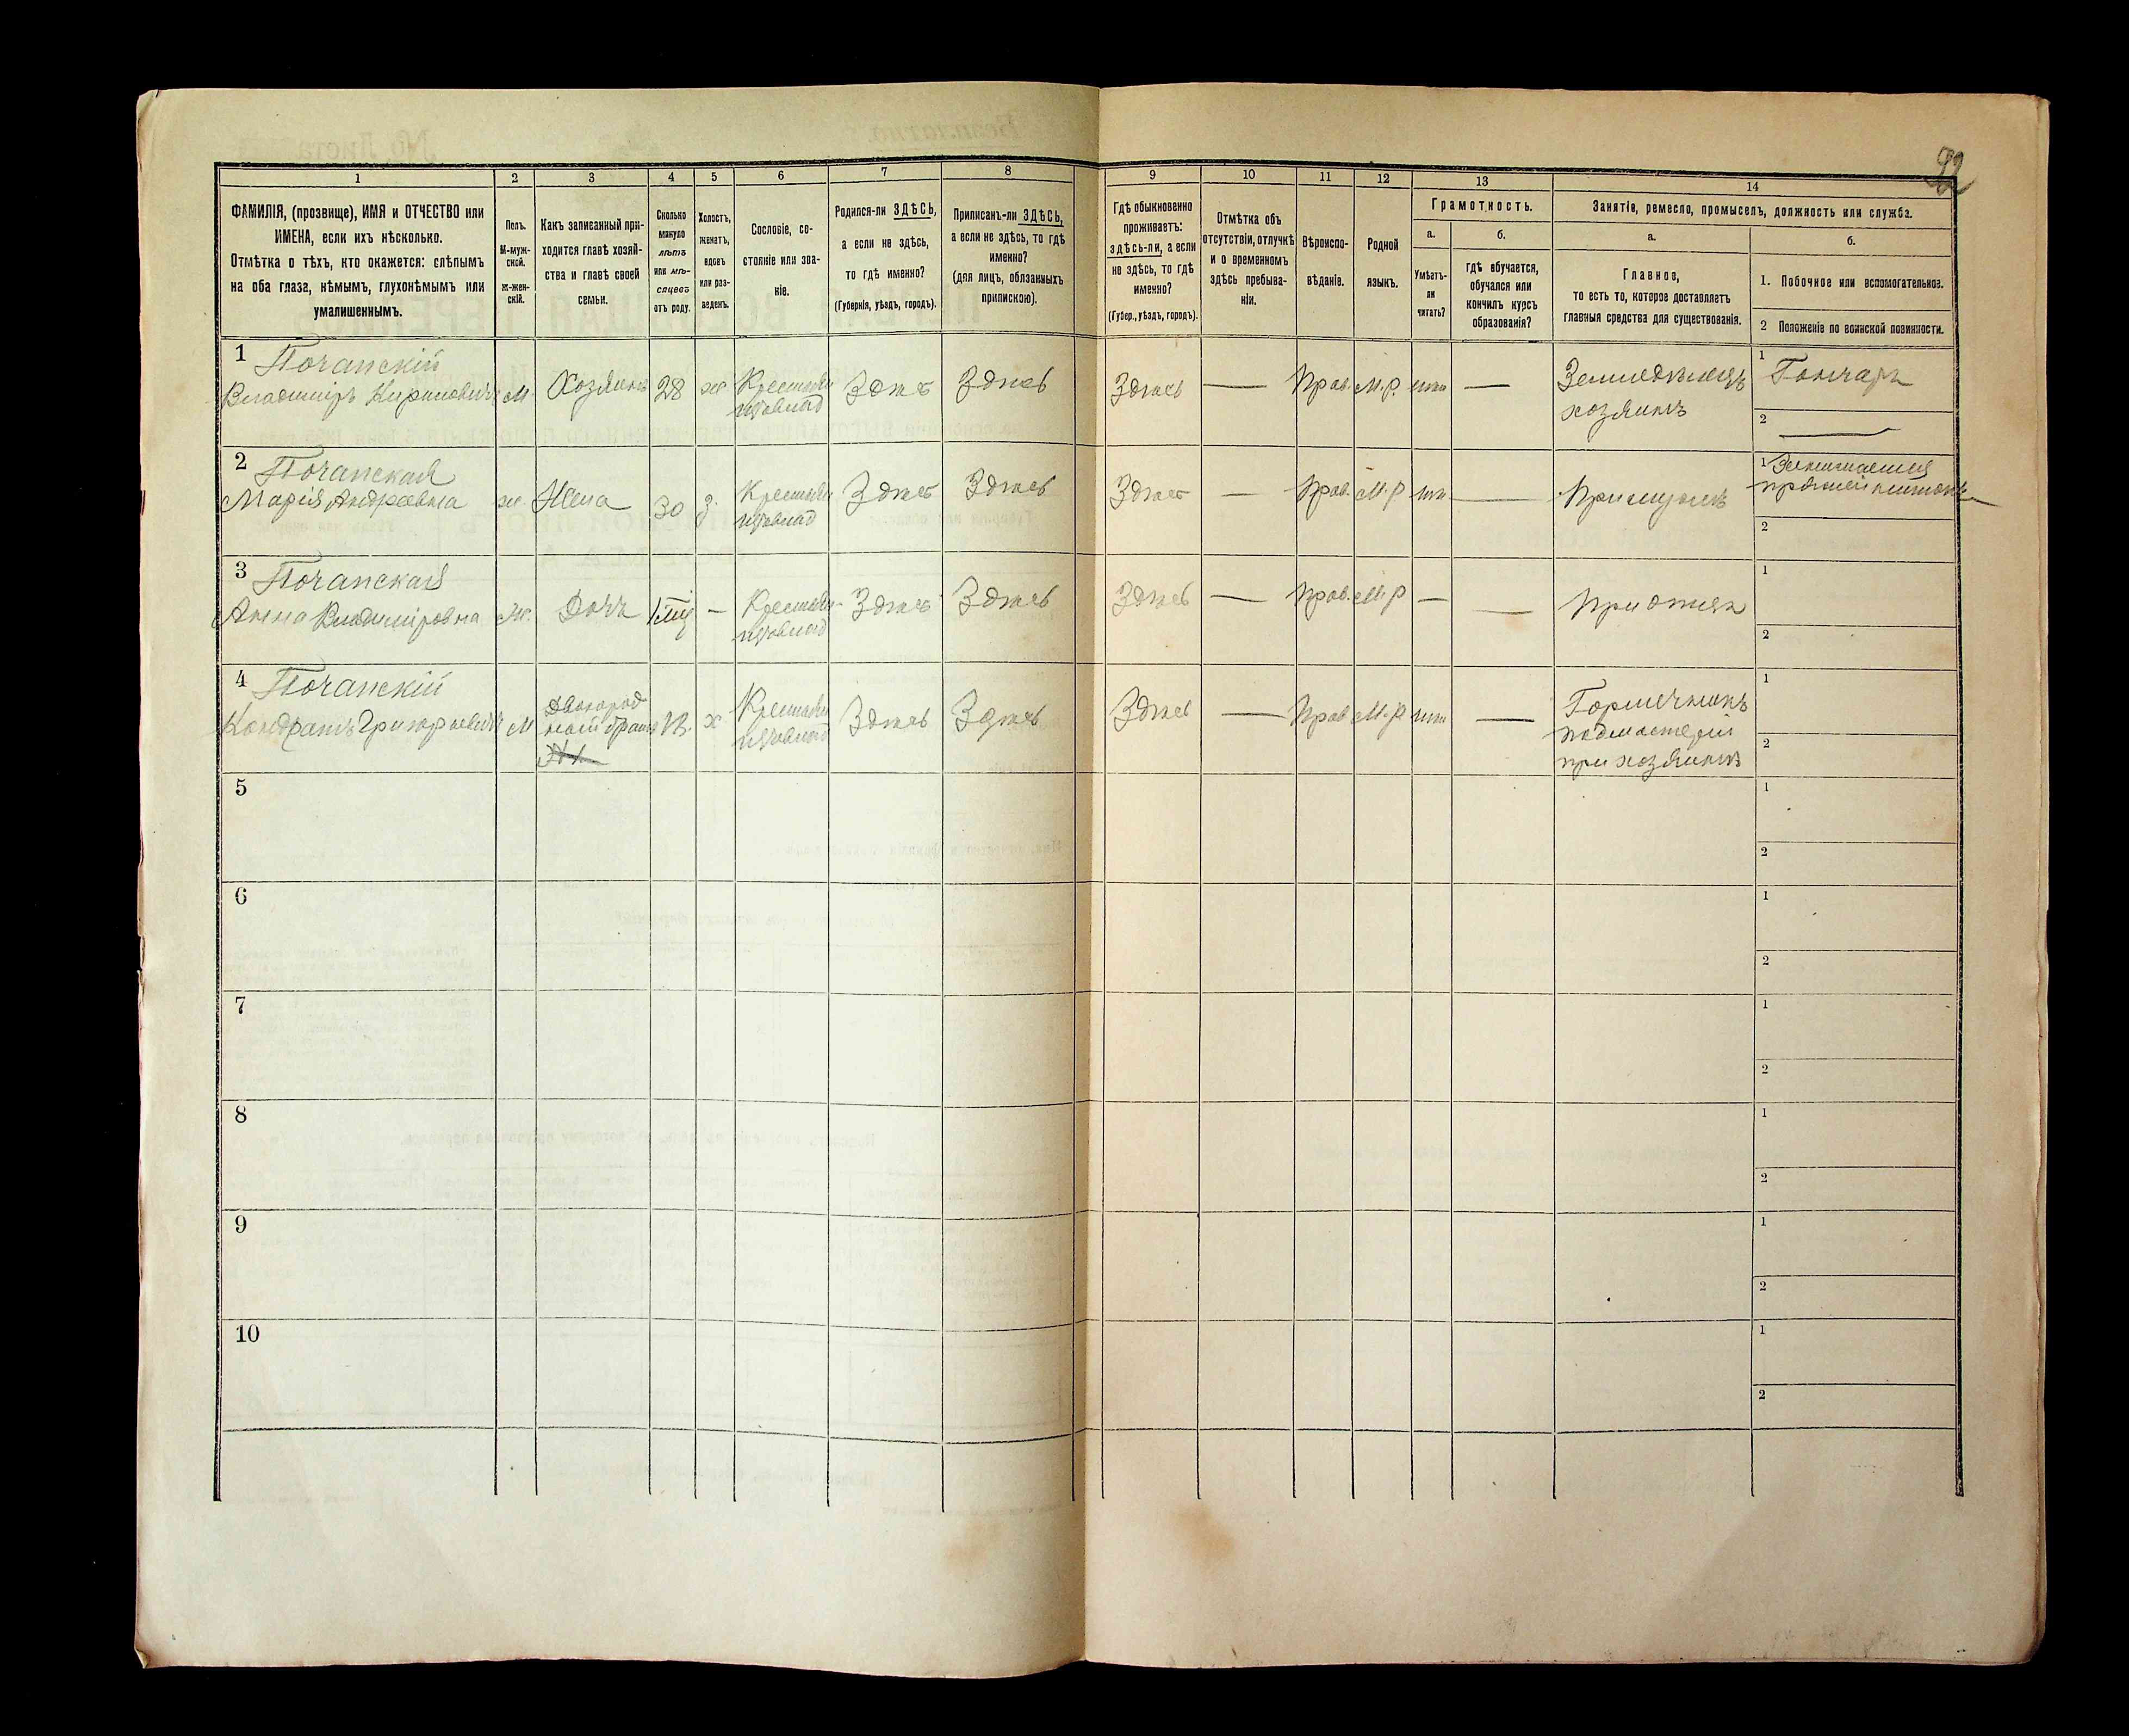 32
1
2
3
4
5
6
7
8
9
10
11
12
13
14
ФАМИЛІЯ, (прозвище), ИМЯ и ОТЧЕСТВО или
ИМЕНА, если ихъ нѣсколько.
Отмѣтка о тѣхъ, кто окажется: слѣпымъ
на оба глаза, нѣмымъ, глухонѣмымъ или
умалишеннымъ.
Полъ.
М-муж-
ской.
Ж-жен-
скій.
Какъ записанный при-
ходится главѣ хозяй-
ства и главѣ своей
семьи.
Сколько
минуло
лѣтъ
или мѣ-
сяцевъ
отъ роду.
Холостъ,
женатъ,
вдовъ
или раз-
веденъ.
Сословіе, со-
стояніе или зва-
ніе.
Родился-ли ЗДѢСЬ,
а если не здѣсь,
то гдѣ именно?
(Губернія, уѣздъ, городъ).
Приписанъ-ли ЗДѢСЬ,
а если не здѣсь, то гдѣ
именно?
(для лицъ, обязанныхъ
припискою).
Гдѣ обыкновенно
проживаетъ:
здѣсь-ли, а если
не здѣсь, то гдѣ
именно?
(Губер., уѣздъ, городъ).
Отмѣтка объ
отсутствіи, отлучкѣ
и о временномъ
здѣсь пребыва-
ніи.
Вѣроиспо-
вѣданіе.
Родной
языкъ.
Грамотность.
а.
Умѣетъ-
ли
читать?
б.
гдѣ обучается,
обучался или
кончилъ курсъ
образованія?
Занятіе, ремесло, промыселъ, должность или служба.
а.
Главное,
то есть то, которое доставляетъ
главныя средства для существованія.
б.
1. Побочное или вспомогательное.
2 Положеніе по воинской повинности.
1 Почапскій
Владиміръ Кириловичъ М. Хозяинъ 28 ж Крестьян Здѣсь Здѣсь Здѣсь — Прав. М.р. — Земледѣлецъ
хозяинъ
1 Гончаръ
2 —
2 Почапская
Марія Андреевна ж. Жена 30 з. Крестьян Здѣсь Здѣсь Здѣсь — Прав. М.р — При мужѣ
1 Занимается
2
3 Почапская
Анна Владиміровна Ж. Дочь — Крестьян Здѣсь Здѣсь Здѣсь — Прав. М.р — — При отцѣ
1
2
4 Почапскій
Кондратъ Григорьевичъ М Двоюрод
ный братъ х Крестьян Здѣсь Здѣсь Здѣсь — Прав М.р —
подмастерій
при хозяинѣ
1
2
5
1
2
6
1
2
7
1
2
8
1
2
9
1
2
10
1
2